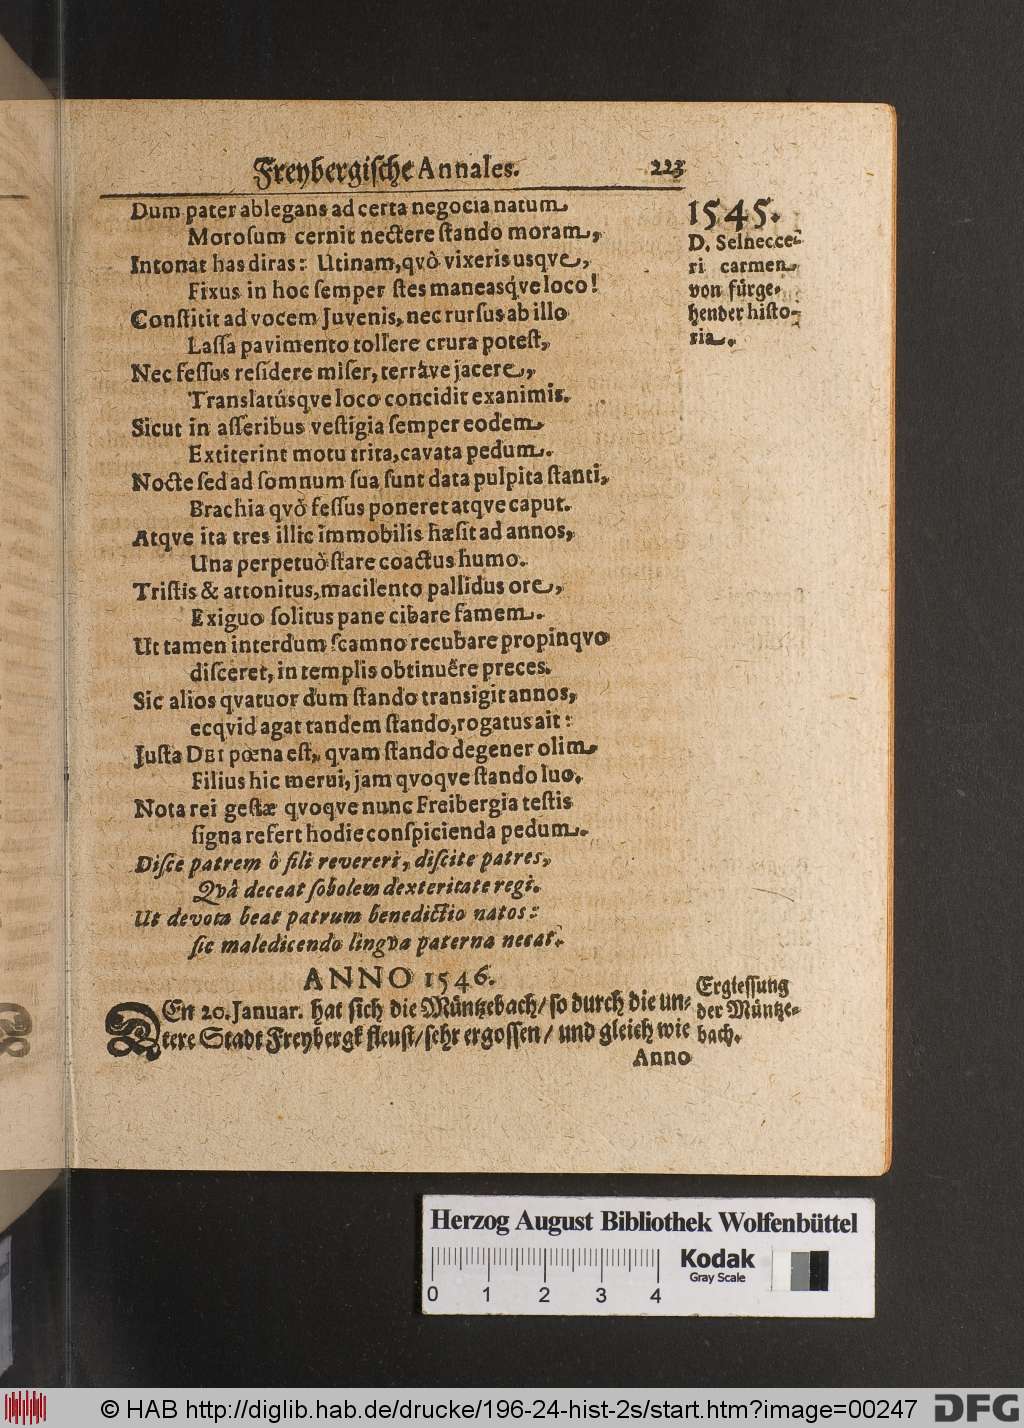 Freybergische Annales. 223
Dum pater ablegans ad certa negocia natum
Moroſum cernit nectere ſtando moram,
Intonat has diras: Utinam, qvò vixeris usqve,
Fixus in hoc ſemper ſtes maneasq́ve loco!
Conſtitit ad vocem Juvenis, nec rurſus ab illo
Laſſa pavimento tollere crura poteſt,
Nec feſſus reſidere miſer, terrâve jacere,
Translatúsqve loco concidit exanimis.
Sicut in aſſeribus veſtigia ſemper eodem
Extiterint motu trita, cavata pedum.
Nocte ſed ad ſomnum ſua ſunt data pulpita ſtanti,
Brachia qvò feſſus poneret atqve caput.
Atqve ita tres illic immobilis hæſit ad annos,
Una perpetuò ſtare coactus humo.
Triſtis & attonitus, macilento pallidus ore,
Exiguo ſolitus pane cibare famem.
Ut tamen interdum ſcamno recubare propinqvo
diſceret, in templis obtinuêre preces.
Sic alios qvatuor dum ſtando transigit annos,
ecqvid agat tandem ſtando, rogatus ait:
Juſta DEI pœna eſt, qvam ſtando degener olim
Filius hic merui, jam qvoqve ſtando luo.
Nota rei geſtæ qvoqve nunc Freibergia teſtis
ſigna refert hodie conſpicienda pedum.
Diſce patrem ô fili revereri, diſcite patres,
Qvâ deceat ſobolem dexteritate regi.
Ut devota beat patrum benedictio natos:
ſic maledicendo lingva paterna necat.
1545.
D. Selnecce-
ri carmen
von fürge-
hender hiſto-
ria.
ANNO 1546.
DEn 20. Januar. hat ſich die Müntzebach/ ſo durch die un-
tere Stadt Freybergk fleuſt/ ſehr ergoſſen/ und gleich wie
Anno
Ergieſſung
der Müntze-
bach.
Herzog August Bibliothek Wolfenbüttel
Kodak
Gray Scale
0 1 2 3 4
© HAB http://diglib.hab.de/drucke/196-24-hist-2s/start.htm?image=00247
DFG